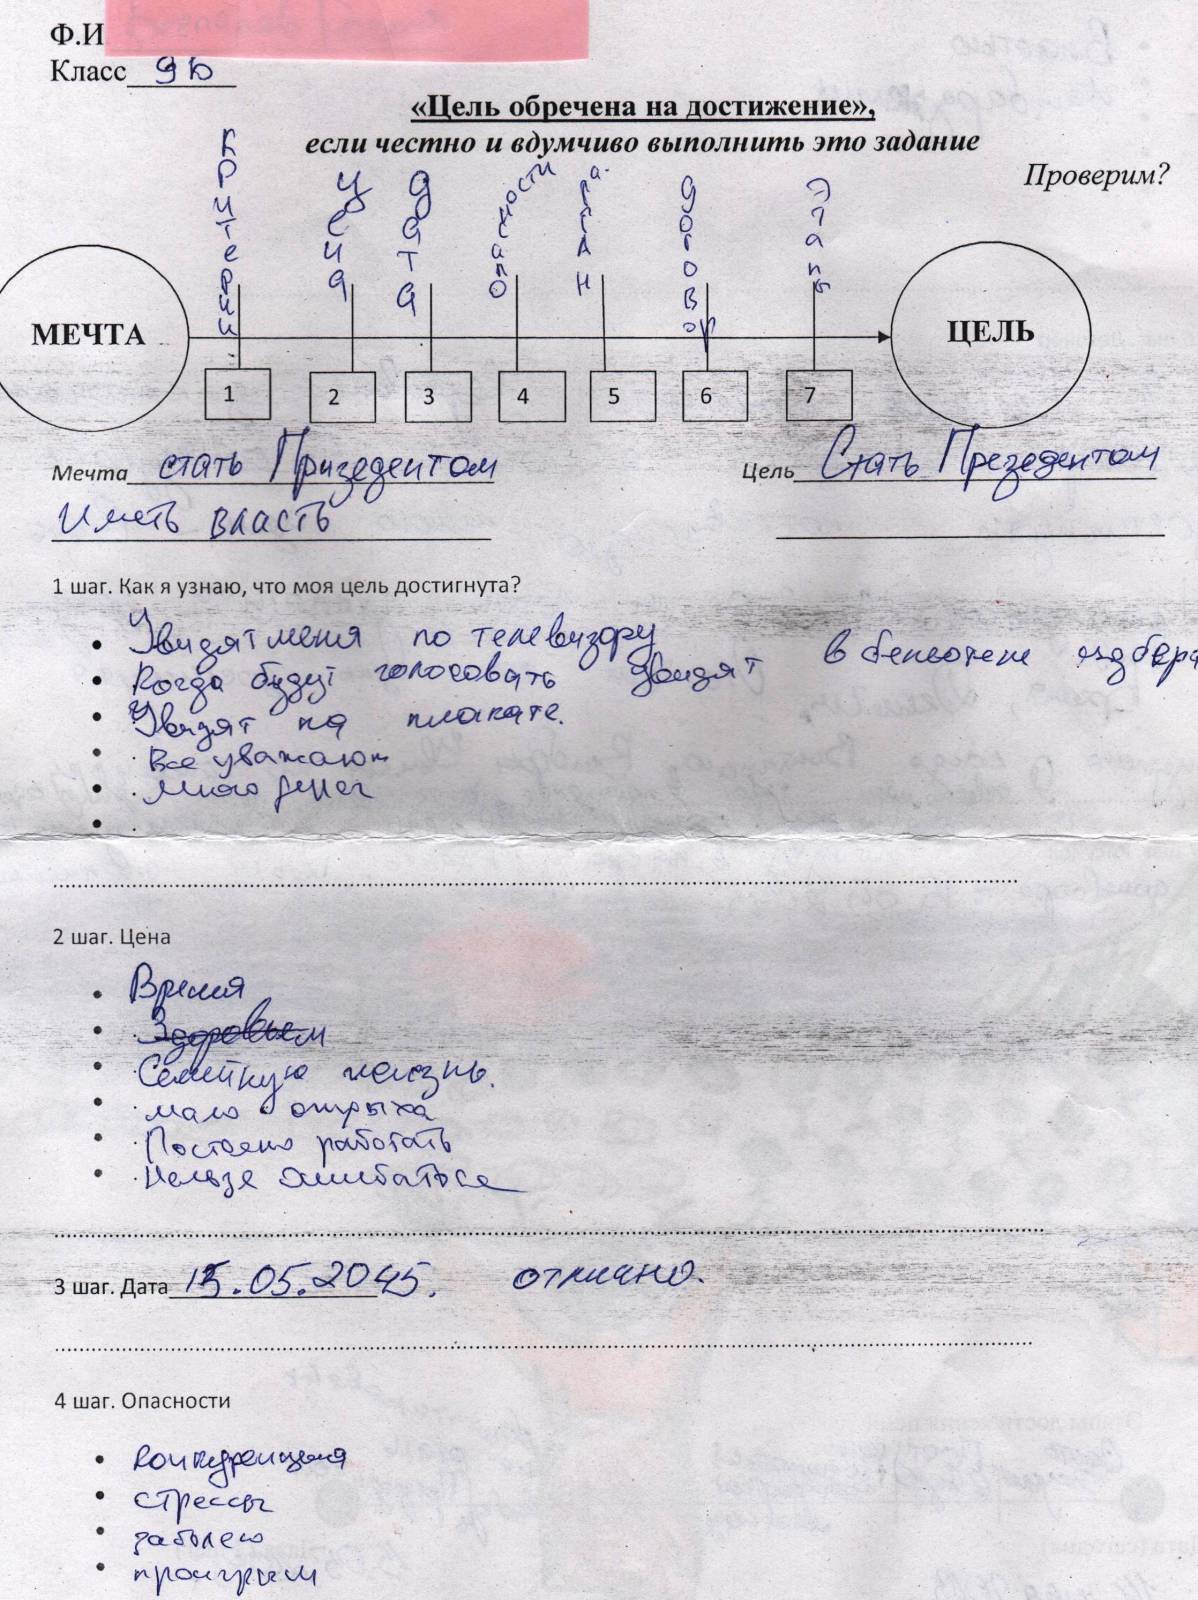 Ф.И
Класс 9б
«Цель обречена на достижение»,
если честно и вдумчиво выполнить это задание
Проверим?
Критерии.
Цена
Дата
Опасности
План
Договор
Этапы
МЕЧТА
ЦЕЛЬ
1 2 3 4 5 6 7
Мечта стать Призедентом
Цель Стать Презедентом
Иметь власть
1 шаг. Как я узнаю, что моя цель достигнута?
• Увидят меня по телевизору
• Когда будут голосовать увидят в
• Увидят на плакате.
• Все уважают
• Много денег
•
2 шаг. Цена
• Время
• Здоровьем
• Семейную жизнь.
• мало отдыха
• Постоено работать
• Нельзе ошибаться
3 шаг. Дата 15.05.2045.
4 шаг. Опасности
• конкуренцыя
• стрессы
• заболею
• проигрыш